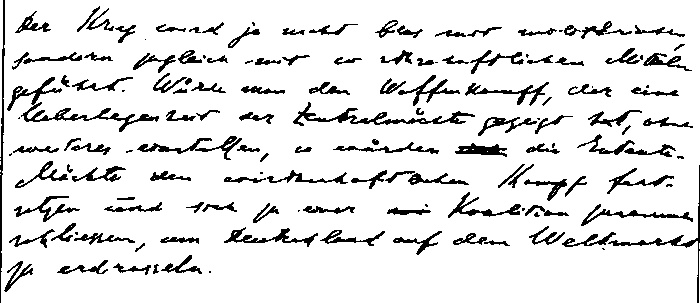 Der Krieg wird ja nicht blos mit militärischen
sondern zugleich mit wirtschaftlichen Mitteln
geführt. Würde man den Waffenkampf, der eine
Ueberlegenheit der Zentralmächte gezeigt hat, ohne
weiteres einstellen, so würden die Entente-
Mächte den wirtschaftlichen Kampf fort-
setzen und sich zu einer Koalition zusammen
schliessen, um Deutschland auf dem Weltmarkt
zu erdrosseln.